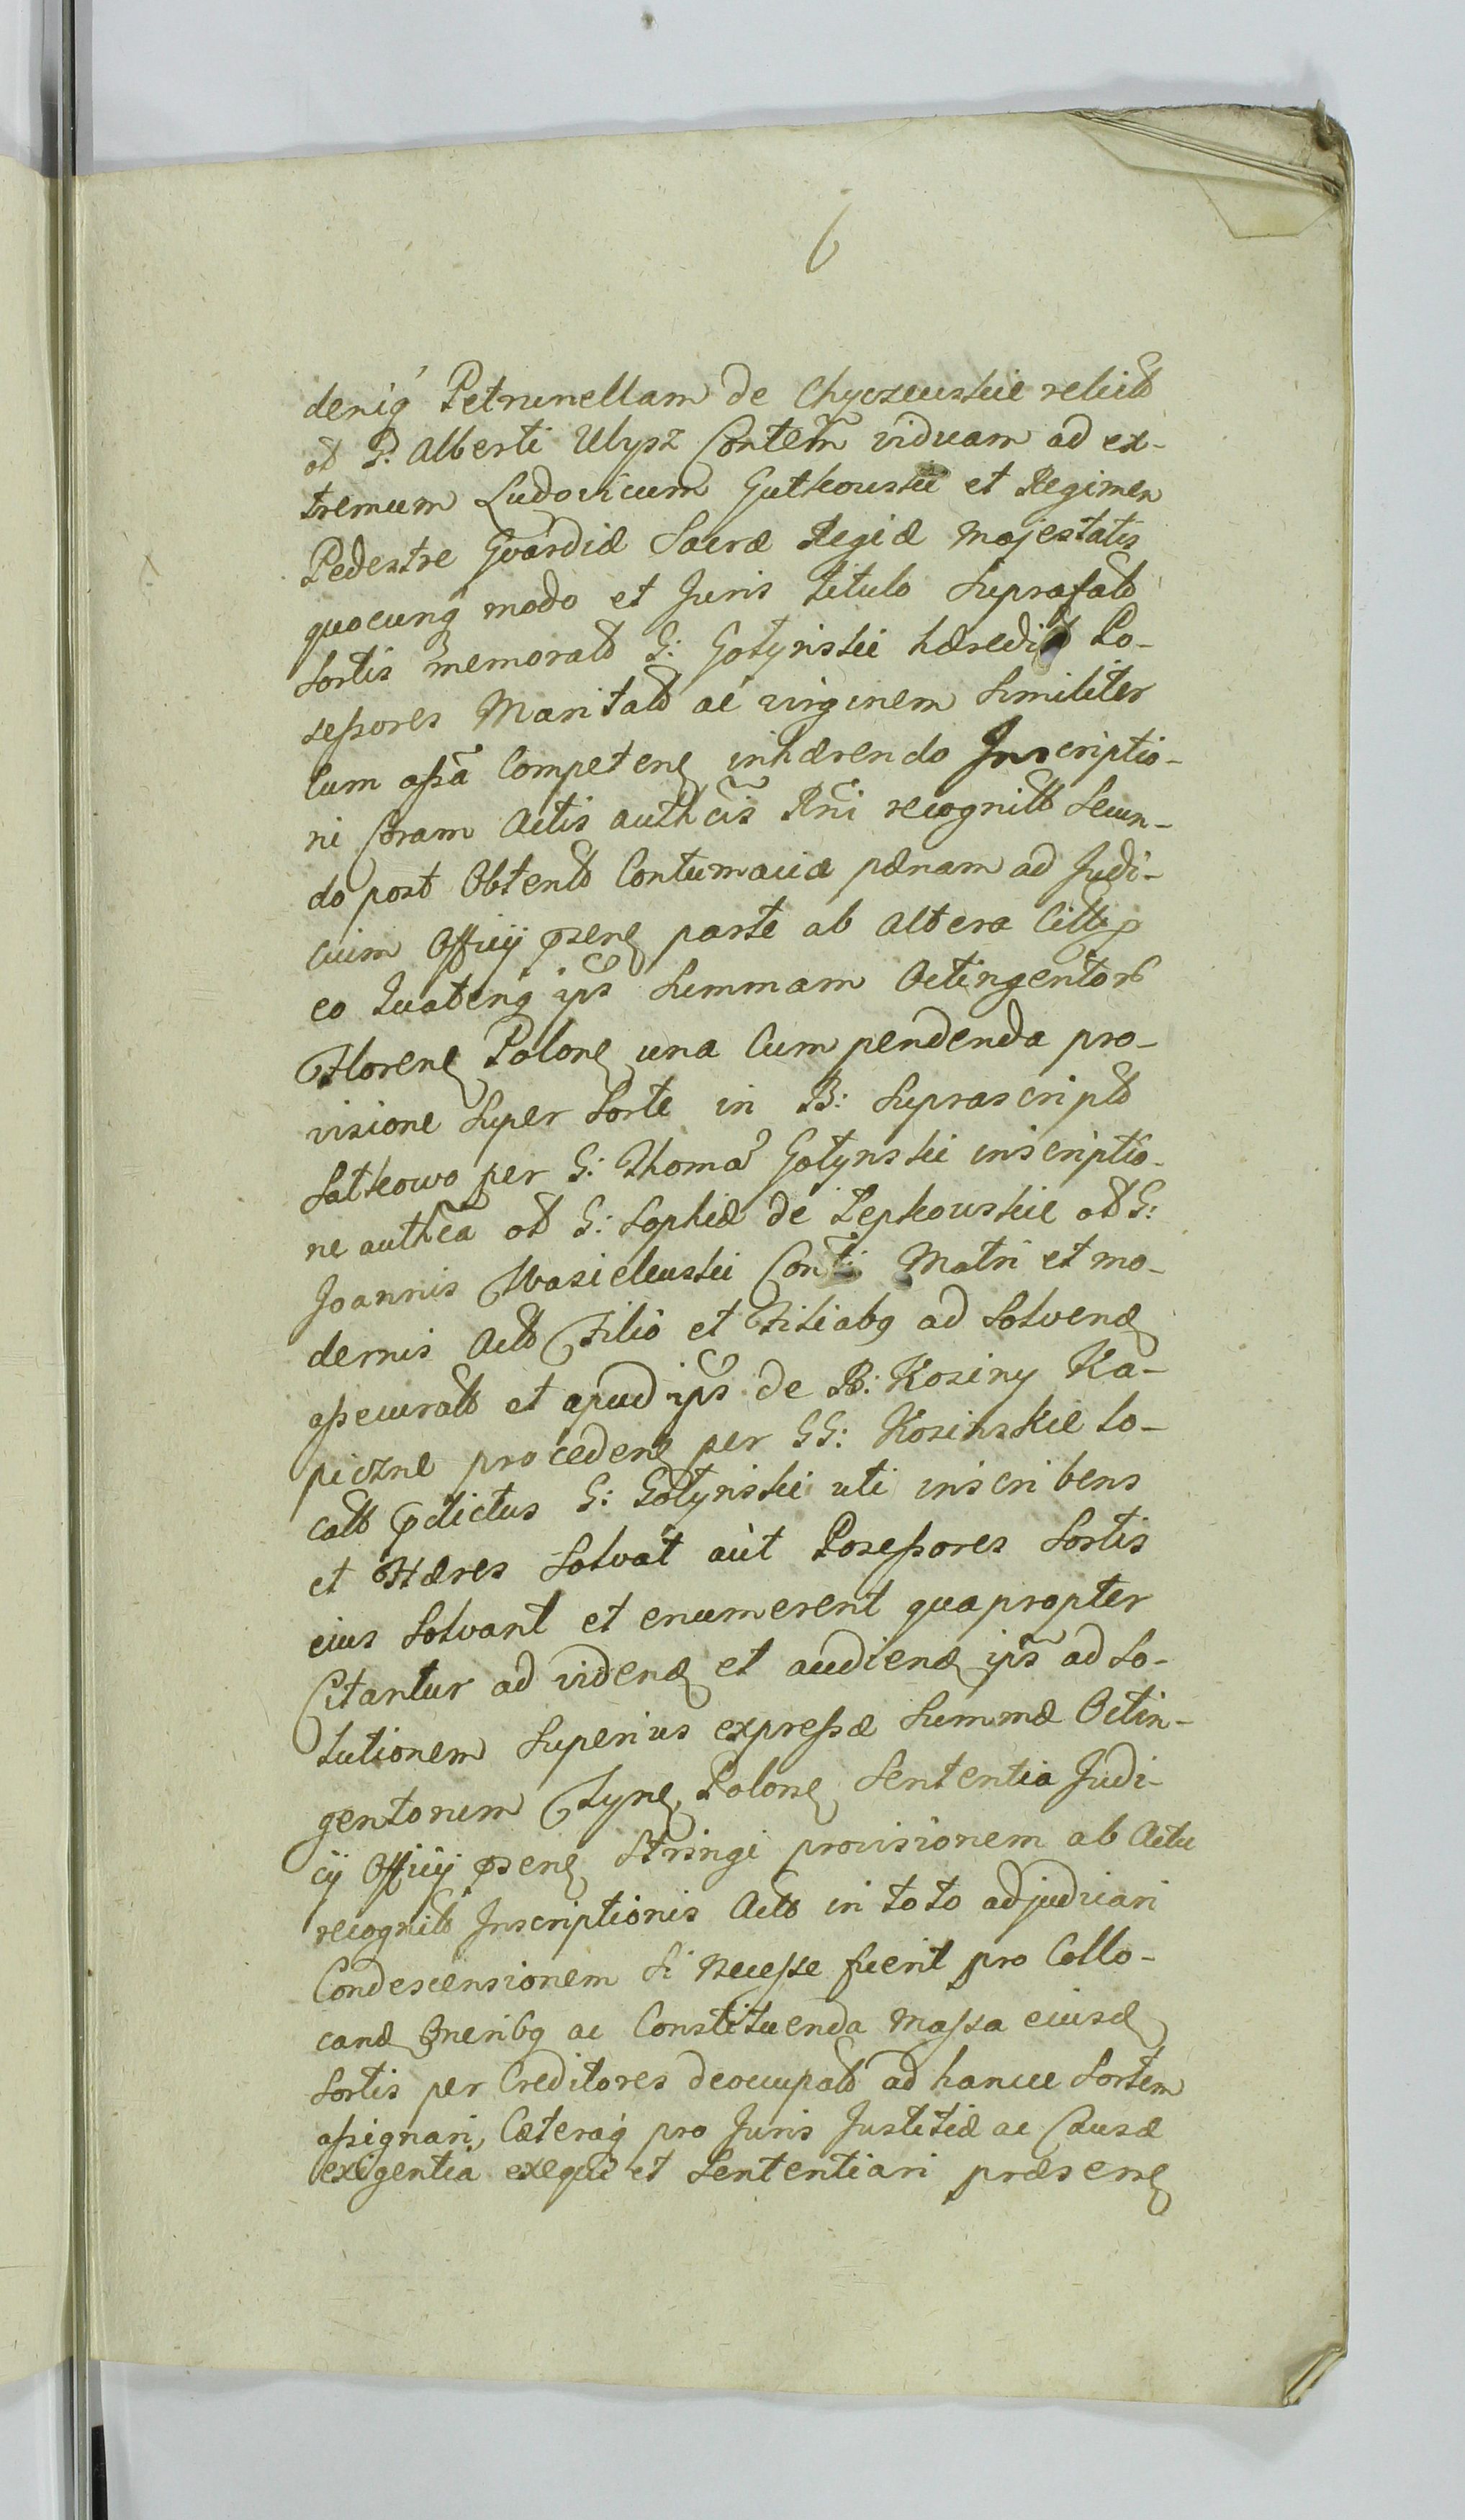 6
deniq Petrunellam de Chyczewskie relict
ol P. Alberti Ulysz Contem viduam ad ex-
tremum Ludovicum Gutkowski et Regimen
Pedestre Gvardiæ Sacræ Regiæ Majestatis
quocunq modo et Juris titulo Suprafat
Sortis memorat G: Gotynskii hæredit Po-
sessores Maritat ac virginem Similiter
Cum assa Competen inhærendo Inscriptio-
ni Coram Actis authcis Rni recognitt Secun-
do post Obtent Contumaciæ pænam ad Judi-
cium Officij psen parte ab altera Citt
eo Quatenq ips Summam Octingentor
Floren Polon una Cum pendenda pro-
visione Super Sorte in B: Suprascript
Sutkowo per G: Thomã Gotynski inscriptio-
ne authca ol G: Sophiæ de Lepkowskie ol G:
Joannis Wasilewski Matri et mo-
dernis Act Filio et Filiabq ad Solvend
assecuratt et apud ips de B: Kosiny Ka-
piczne proceden per GG: Kosinskie lo-
catt pdictus G: Gotynski uti inscribens
et Hæres Solvat aut Posessores Sortis
eius Solvant et enumerent quapropter
Citantur ad vidend et audiend ips ad So-
lutionem Superius expressæ Summæ Octin-
gentorum Flyn, Polon Sententia Judi-
cij Officij psen Stringi provisionem ab Actu
recognit Inscriptionis Act in toto adjudicari
Condescensionem Si Necesse fuerit pro Collo-
cand Oneribq ac Constituenda Massa eiusd
Sortis per Creditores deoccupat ad hancce Sortem
assignari, Cæteraq pro Juris Justitiæ ac Causæ
exigentia exequi et Sententiari præsen